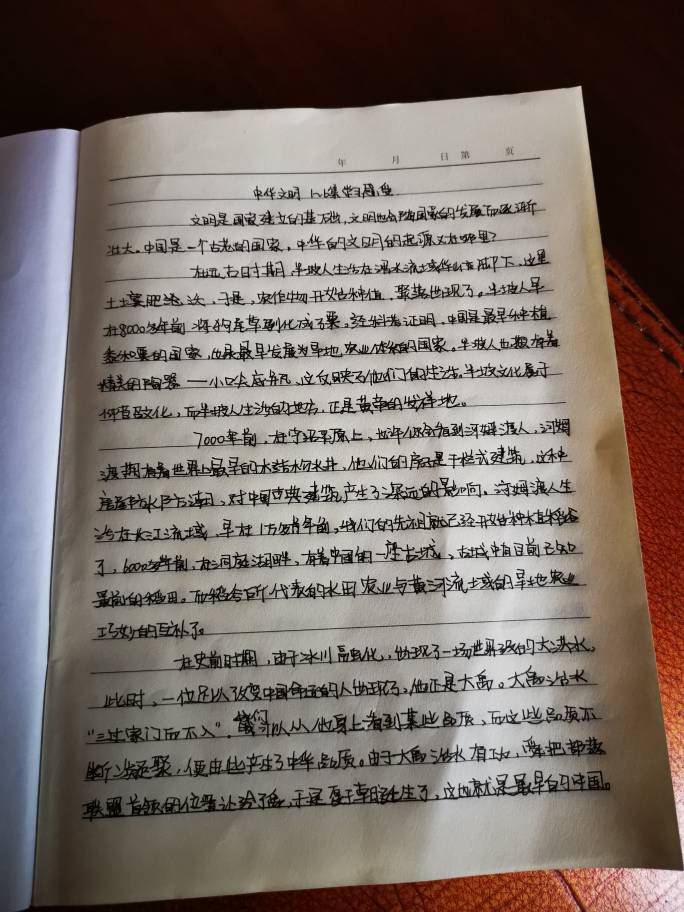 年 月 日 第 页
中华文明 1~上集学习感受
文明是国家建立的基础，文明也会随国家的发展而逐渐
壮大。中国是一个古老的国家，中华的文明的起源又在哪里？
在远古时期，半坡人生活在渭水流域华山脚下，这里
土壤肥沃，于是，农作物开始种植，聚落出现了。半坡人早
在8000多年前将狗尾草驯化成了粟。经科考证明，中国是最早种植
黍和粟的国家，也是最早发展为旱地农业体系的国家。半坡人也拥有着
精美的陶器——小口尖底瓶，这反映了他们的生活。半坡文化属于
仰韶文化，而半坡人生活的地方，正是黄帝的发祥地。
7000年前，在宁绍平原上，也许你会看到河姆渡人，河姆
渡拥有着世界上最早的木结构水井，他们的房子是干栏式建筑，这种
房屋防水防潮，对中国古典建筑产生了深远的影响。河姆渡人生
活在长江流域，早在1万多年前，他们的先祖就已经开始种植稻谷
了，6000多年前，在洞庭湖畔，有着中国第一座古城，古城中有目前已知
最早的稻田。而稻谷所代表的水田农业与黄河流域的旱地农业
巧妙的互补了。
在史前时期，由于冰川融化，出现了一场世界级的大洪水，
此时，一位足以改变中国命运的人出现了，他正是大禹。大禹治水
“三过家门而不入”，我们可以从他身上看到某些品质，而这些品质不
断凝聚，便由此产生了中华品质。由于大禹治水有功，舜把部落
联盟首领的位置让给了禹，于是夏王朝诞生了，这也就是最早的中国。